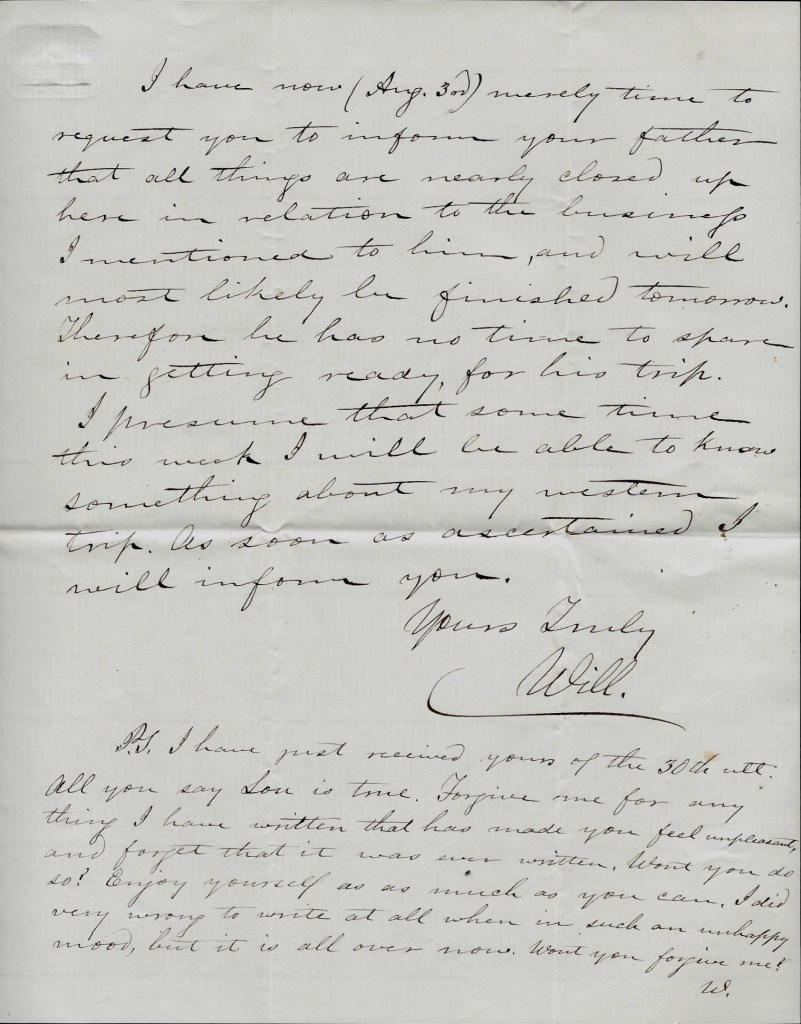 I have now (Aug. 3rd) merely time to
request you to inform your father
that all things are nearly closed up
here in relation to the business
I mentioned to him, and will
most likely be finished tomorrow.
Therefore he has no time to spare
in getting ready, for his trip.
I presume that some time
this week I will be able to know
something about my western
trip. As soon as ascertained I
will inform you.
Yours Truly
Will.
P.S. I have just received yours of the 30th ult.
All you say Lou is true. Forgive me for any
thing I have written that has made you feel unpleasant,
and forget that it was ever written. Wont you do
so? Enjoy yourself as as much as you can. I did
very wrong to write at all when in such an unhappy
mood, but it is all over now. Wont you forgive me?
W.